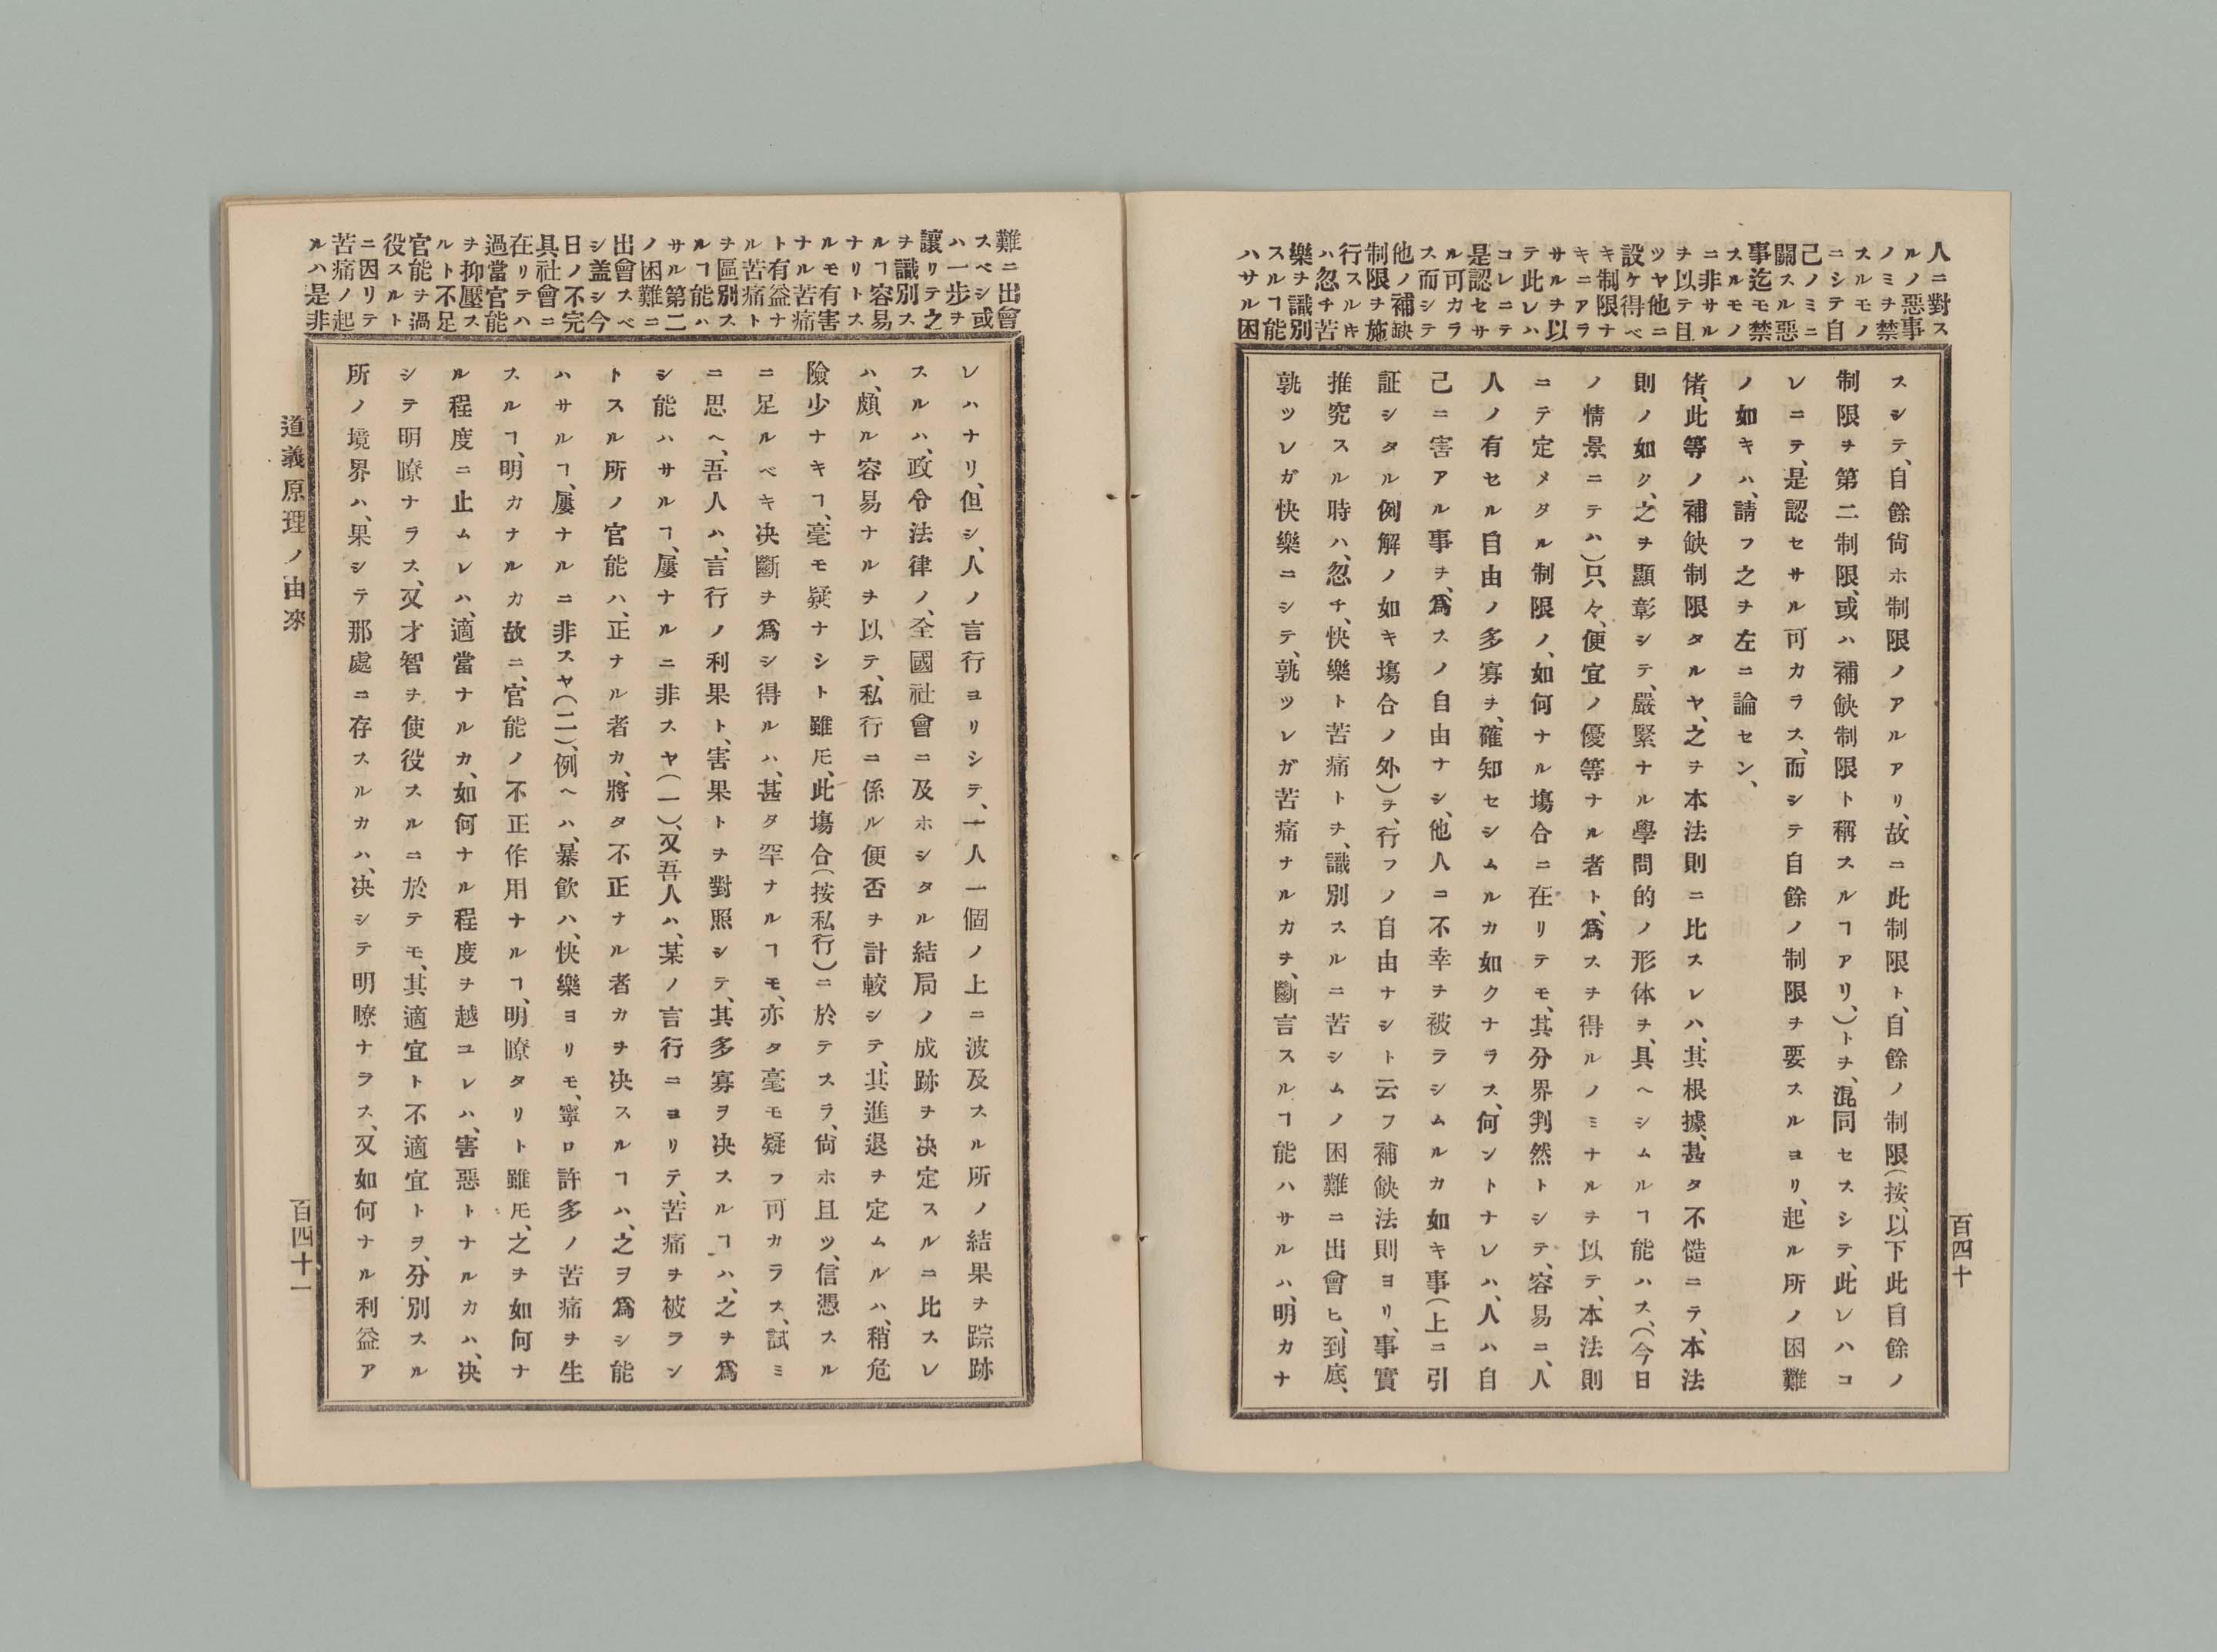 人ニ對ス
ルノ惡事
ノミヲ禁
スルモノ
ニシテ自
己ノミニ
關スル惡
事迄モ禁
スルモノ
ニ非サル
ヲ以テ且
ツヤ他ニ
設ケ得ベ
キ制限ナ
キニアラ
サルヲ以
テ此レハ
コレニテ
是認セサ
ル可カラ
ス而シテ
他ノ補缺
制限ヲ施
行スルキ
ハ忽チ苦
樂ヲ識別
スルヿ能
ハサル困
スシテ、自餘尙ホ制限ノアルアリ、故ニ此制限ト、自餘ノ制限(按、以下此自餘ノ
制限ヲ第二制限、或ハ補缺制限ト稱スルヿアリ、)トヲ、混同セスシテ、此レハコ
レニテ、是認セサル可カラス、而シテ自餘ノ制限ヲ要スルヨリ、起ル所ノ困難
ノ如キハ、請フ之ヲ左ニ論セン、
偖、此等ノ補缺制限タルヤ、之ヲ本法則ニ比スレハ、其根據、甚タ不慥ニテ、本法
則ノ如ク、之ヲ顯彰シテ、嚴緊ナル學問的ノ形体ヲ、具ヘシムルヿ能ハス、(今日
ノ情景ニテハ)只々、便宜ノ優等ナル者ト、爲スヲ得ルノミナルヲ以テ、本法則
ニテ定メタル制限ノ、如何ナル塲合ニ在リテモ、其分界判然トシテ、容易ニ、人
人ノ有セル自由ノ多寡ヲ、確知セシムルカ如クナラス、何ントナレハ、人ハ自
己ニ害アル事ヲ、爲スノ自由ナシ、他人コ不幸ヲ被ラシムルカ如キ事(上ニ引
証シタル例解ノ如キ塲合ノ外)ヲ、行フノ自由ナシト云フ補缺法則ヨリ、事實
推究スル時ハ、忽チ、快樂ト苦痛トヲ、識別スルニ苦シムノ困難ニ出會ヒ、到底、
孰ツレガ快樂ニシテ、孰ツレガ苦痛ナルカヲ、斷言スルヿ能ハサルハ、明カナ
百四十
難ニ出會
スベシ或
ハ一步ヲ
讓リテ之
ヲ識別ス
ルヿ容易
ナリトス
ルモ有害
ナル苦痛
ト有益ナ
ル苦痛ト
ヲ區別ス
ルヿ能ハ
サル第二
ノ困難ニ
出會スベ
シ盖シ今
日ノ不完
具社會ニ
在リテハ
過當官能
ヲ抑壓ス
ルト不足
官能ヲ過
役スルト
ニ因リテ
苦痛ノ起
ルハ是非
レハナリ、但シ、人ノ言行ヨリシテ、一人一個ノ上ニ波及スル所ノ結果ヲ踪跡
スルハ、政令法律ノ、全國社會ニ及ホシタル結局ノ成跡ヲ決定スルニ比スレ
ハ、頗ル容易ナルヲ以テ、私行ニ係ル便否ヲ計較シテ、其進退ヲ定ムルハ、稍危
險少ナキヿ、毫モ疑ナシト雖𪜈、此塲合(按私行)ニ於テスラ、尙ホ且ツ、信憑スル
ニ足ルベキ决斷ヲ爲シ得ルハ、甚タ罕ナルヿモ、亦タ毫モ疑フ可カラス、試ミ
ニ思ヘ、吾人ハ、言行ノ利果ト、害果トヲ對照シテ、其多寡ヲ决スルヿハ、之ヲ爲
シ能ハサルヿ、屢ナルニ非スヤ(一)、又吾人ハ、某ノ言行ニヨリテ、苦痛ヲ被ラン
トスル所ノ官能ハ、正ナル者カ、將タ不正ナル者カヲ决スルヿハ、之ヲ爲シ能
ハサルヿ、屢ナルニ非スヤ(二)、例ヘハ、暴飮ハ、快樂ヨリモ、寧ロ許多ノ苦痛ヲ生
スルヿ、明カナルカ故ニ、官能ノ不正作用ナルヿ、明瞭タリト雖𪜈、之ヲ如何ナ
ル程度ニ止ムレハ、適當ナルカ、如何ナル程度ヲ越コレハ、害惡トナルカハ、决
シテ明瞭ナラス、又才智ヲ使役スルニ於テモ、其適宜ト不適宜トヲ、分別スル
所ノ境界ハ、果シテ那處ニ存スルカハ、决シテ明瞭ナラス、又如何ナル利益ア
道義原理ノ由來
百四十一